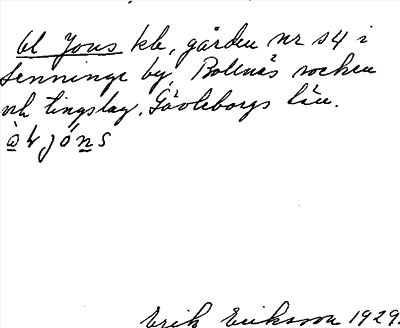 Ol Jons kb, gården nr 14 i
Senninge by, Bollnäs socken
och tingslag. Gävleborgs län.
Erik Eriksson 1929.